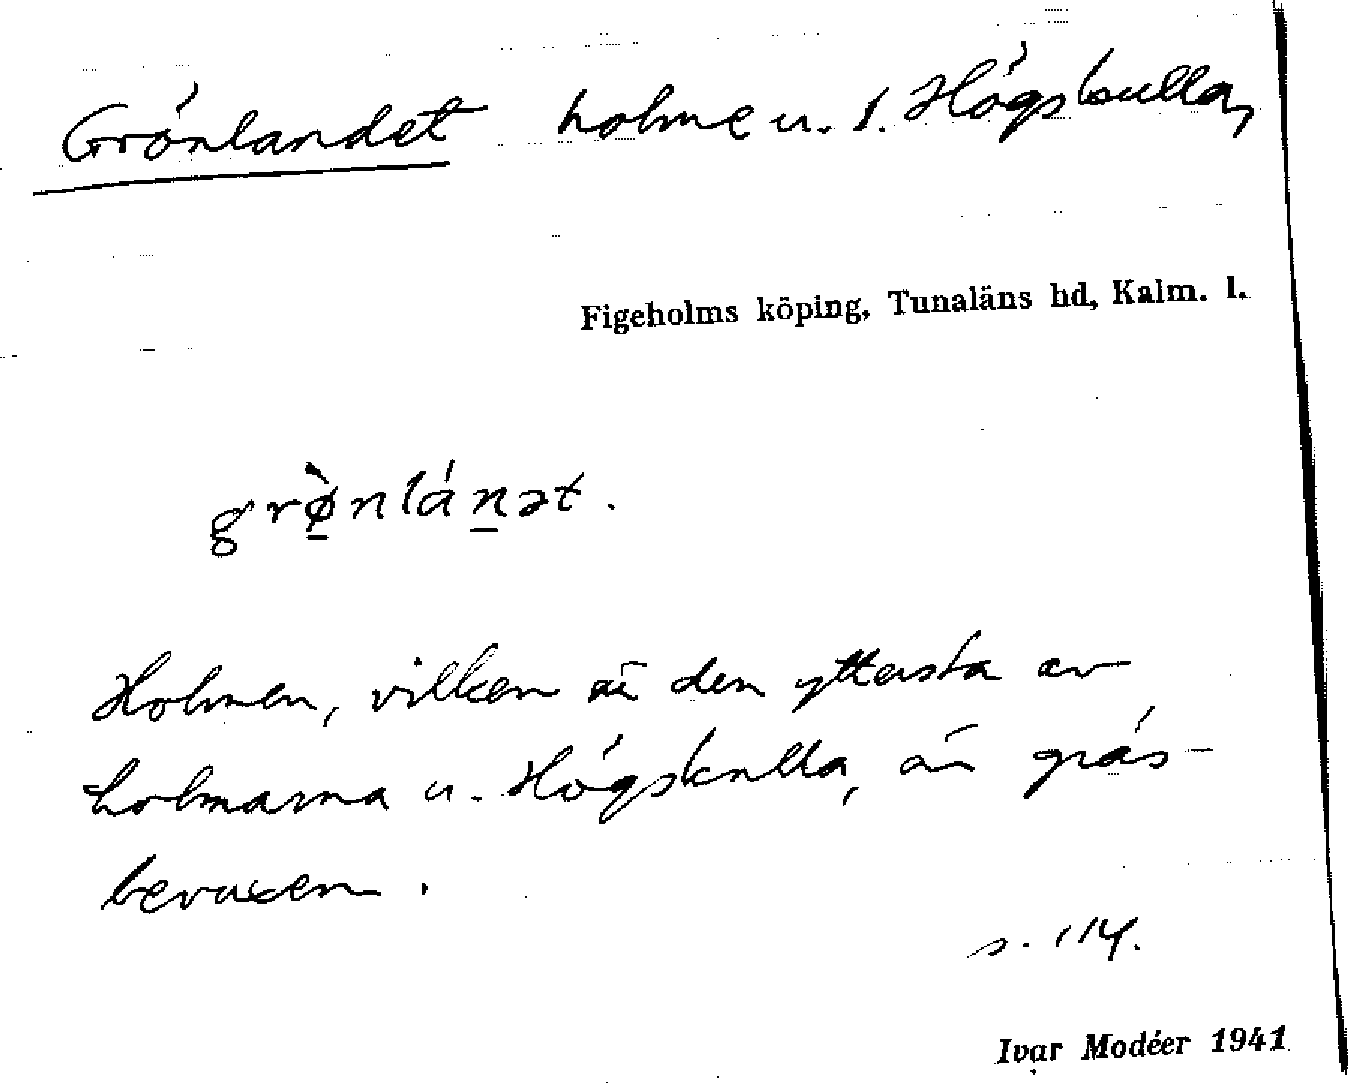 Grönlandet holme u. f. Högskulla,
Figeholms köping, Tunaläns hd, Kalm. l.
grø̀nlánət.
Holmen, vilken är den yttersta av
holmarna u. Högskulla, är gräs-
bevuxen.
s. 114.
Ivar Modéer 1941